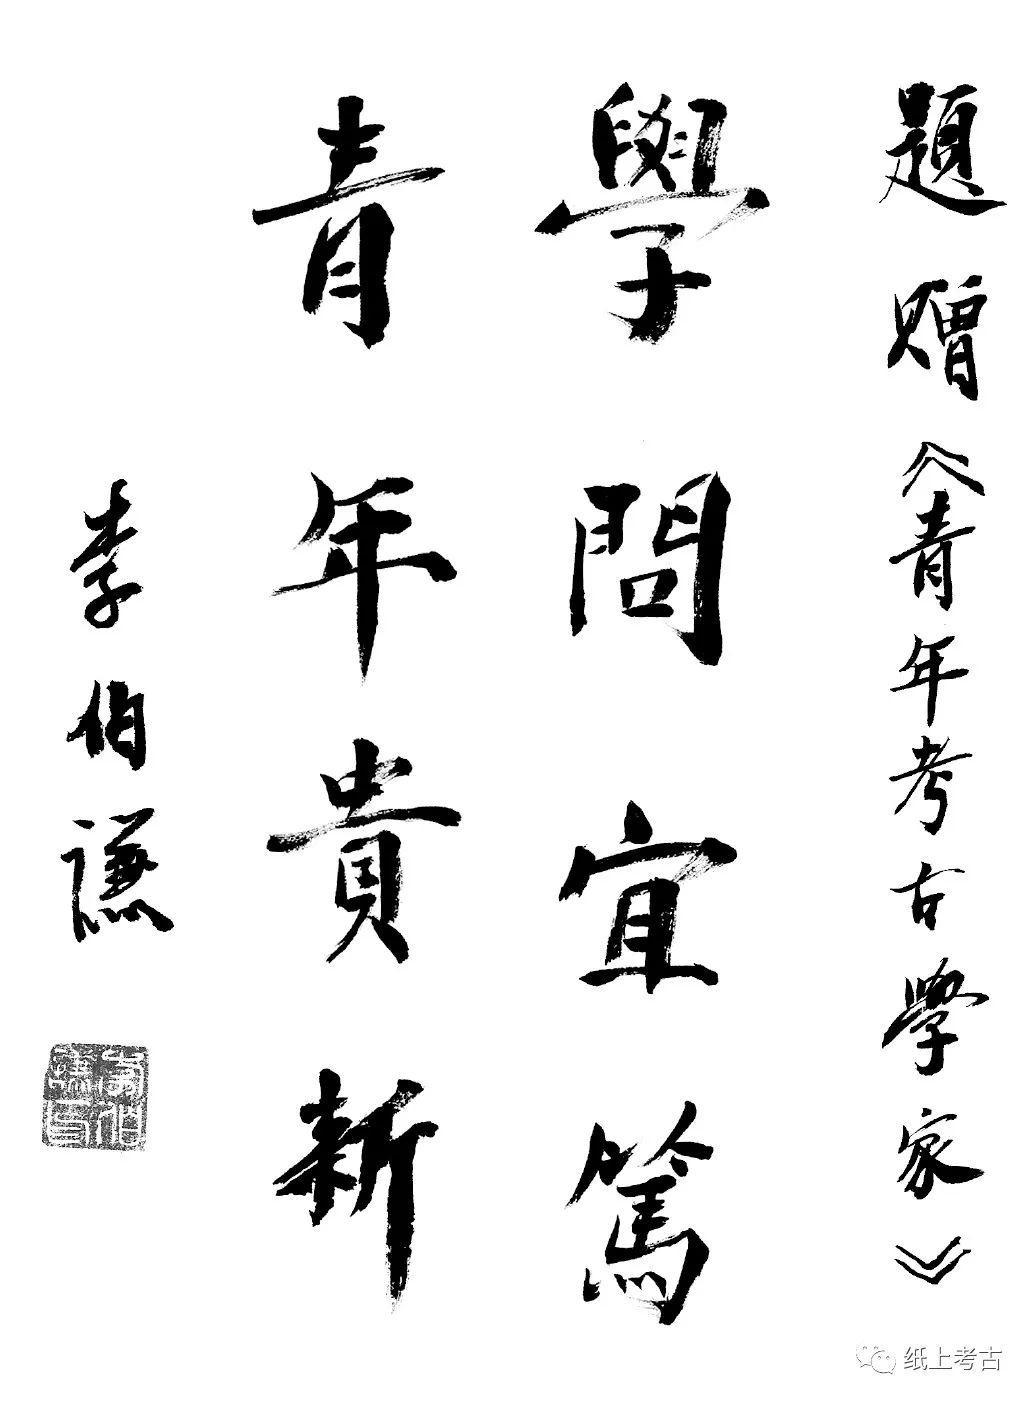 題贈《青年考古學家》
學問宜篤
青年貴新
李伯謙
李伯謙印
纸上考古